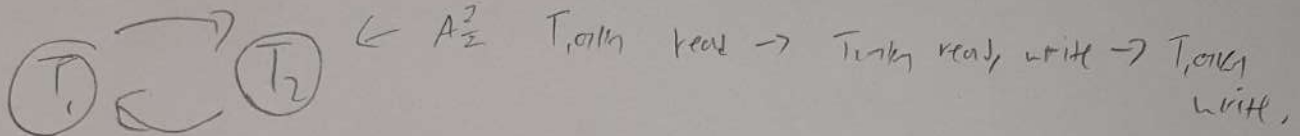 T₁ T₂ ← A를 T₁에서 read → T₂에서 read, write → T₁에서
write.